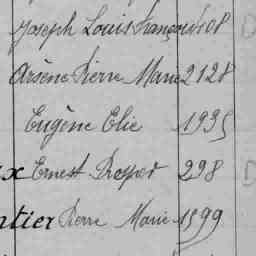 Joseph Louis François 108
Arsène Pierre Marie 2128
Eugène Elie 1935
x Ernest Prosper 298 D
ntier Pierre Marie 1599